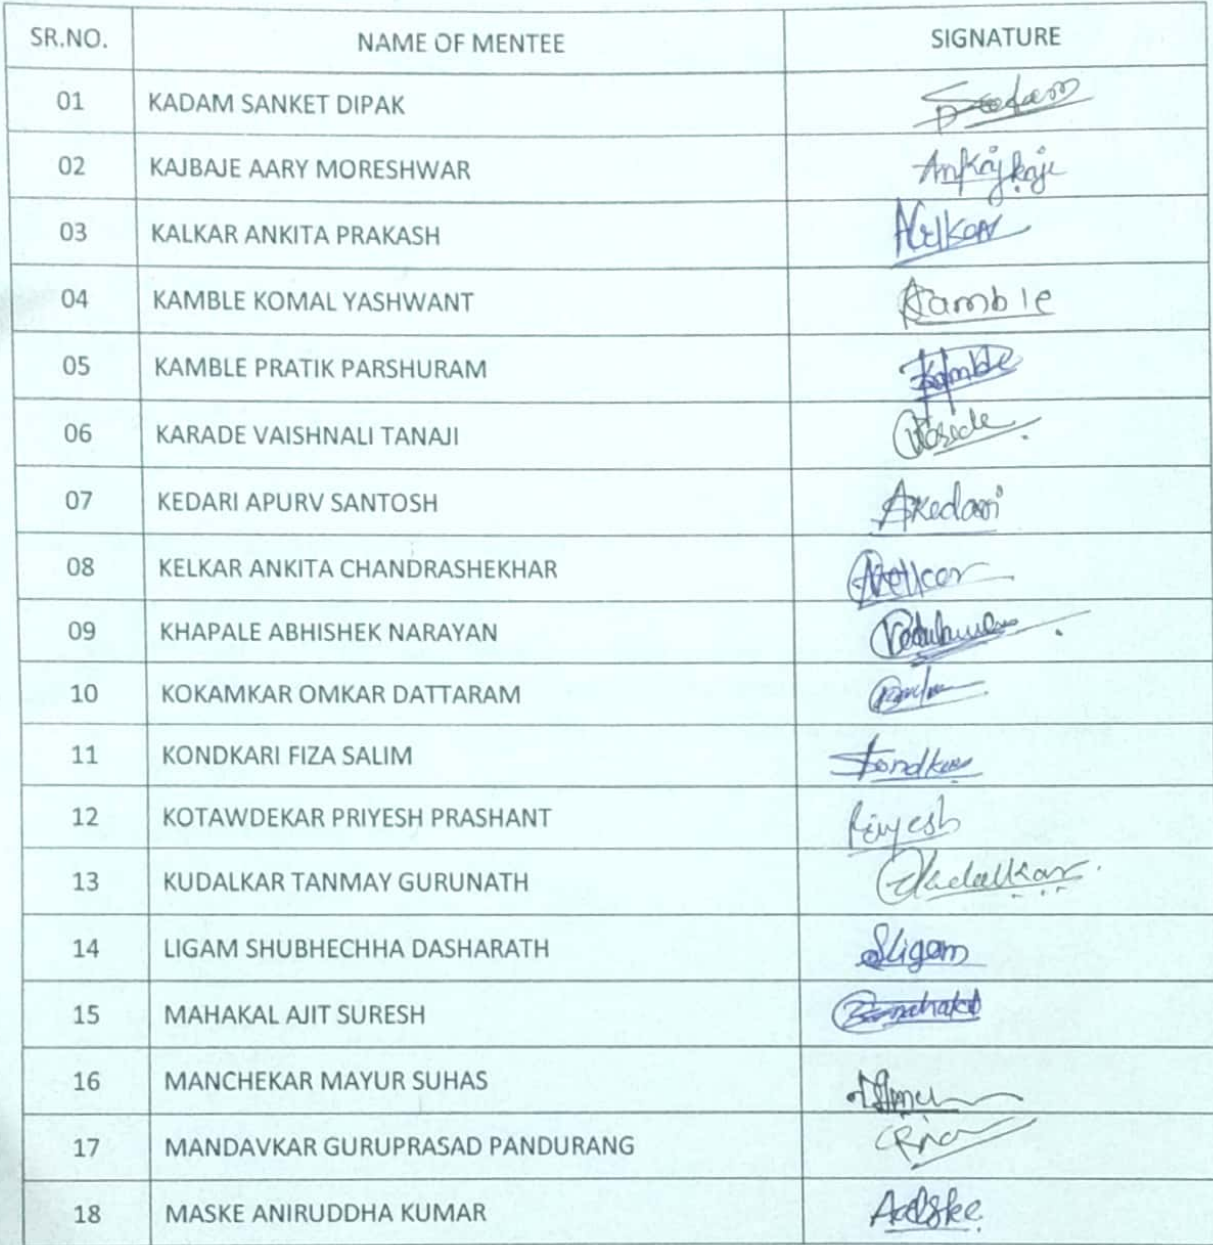 SR.NO. NAME OF MENTEE SIGNATURE
01 KADAM SANKET DIPAK
02 KAJBAJE AARY MORESHWAR
03 KALKAR ANKITA PRAKASH
04 KAMBLE KOMAL YASHWANT Kamble
05 KAMBLE PRATIK PARSHURAM Kamble
06 KARADE VAISHNALI TANAJI
07 KEDARI APURV SANTOSH AKedari
08 KELKAR ANKITA CHANDRASHEKHAR
09 KHAPALE ABHISHEK NARAYAN
10 KOKAMKAR OMKAR DATTARAM
11 KONDKARI FIZA SALIM
12 KOTAWDEKAR PRIYESH PRASHANT Priyesh
13 KUDALKAR TANMAY GURUNATH
14 LIGAM SHUBHECHHA DASHARATH SLigam
15 MAHAKAL AJIT SURESH
16 MANCHEKAR MAYUR SUHAS
17 MANDAVKAR GURUPRASAD PANDURANG
18 MASKE ANIRUDDHA KUMAR